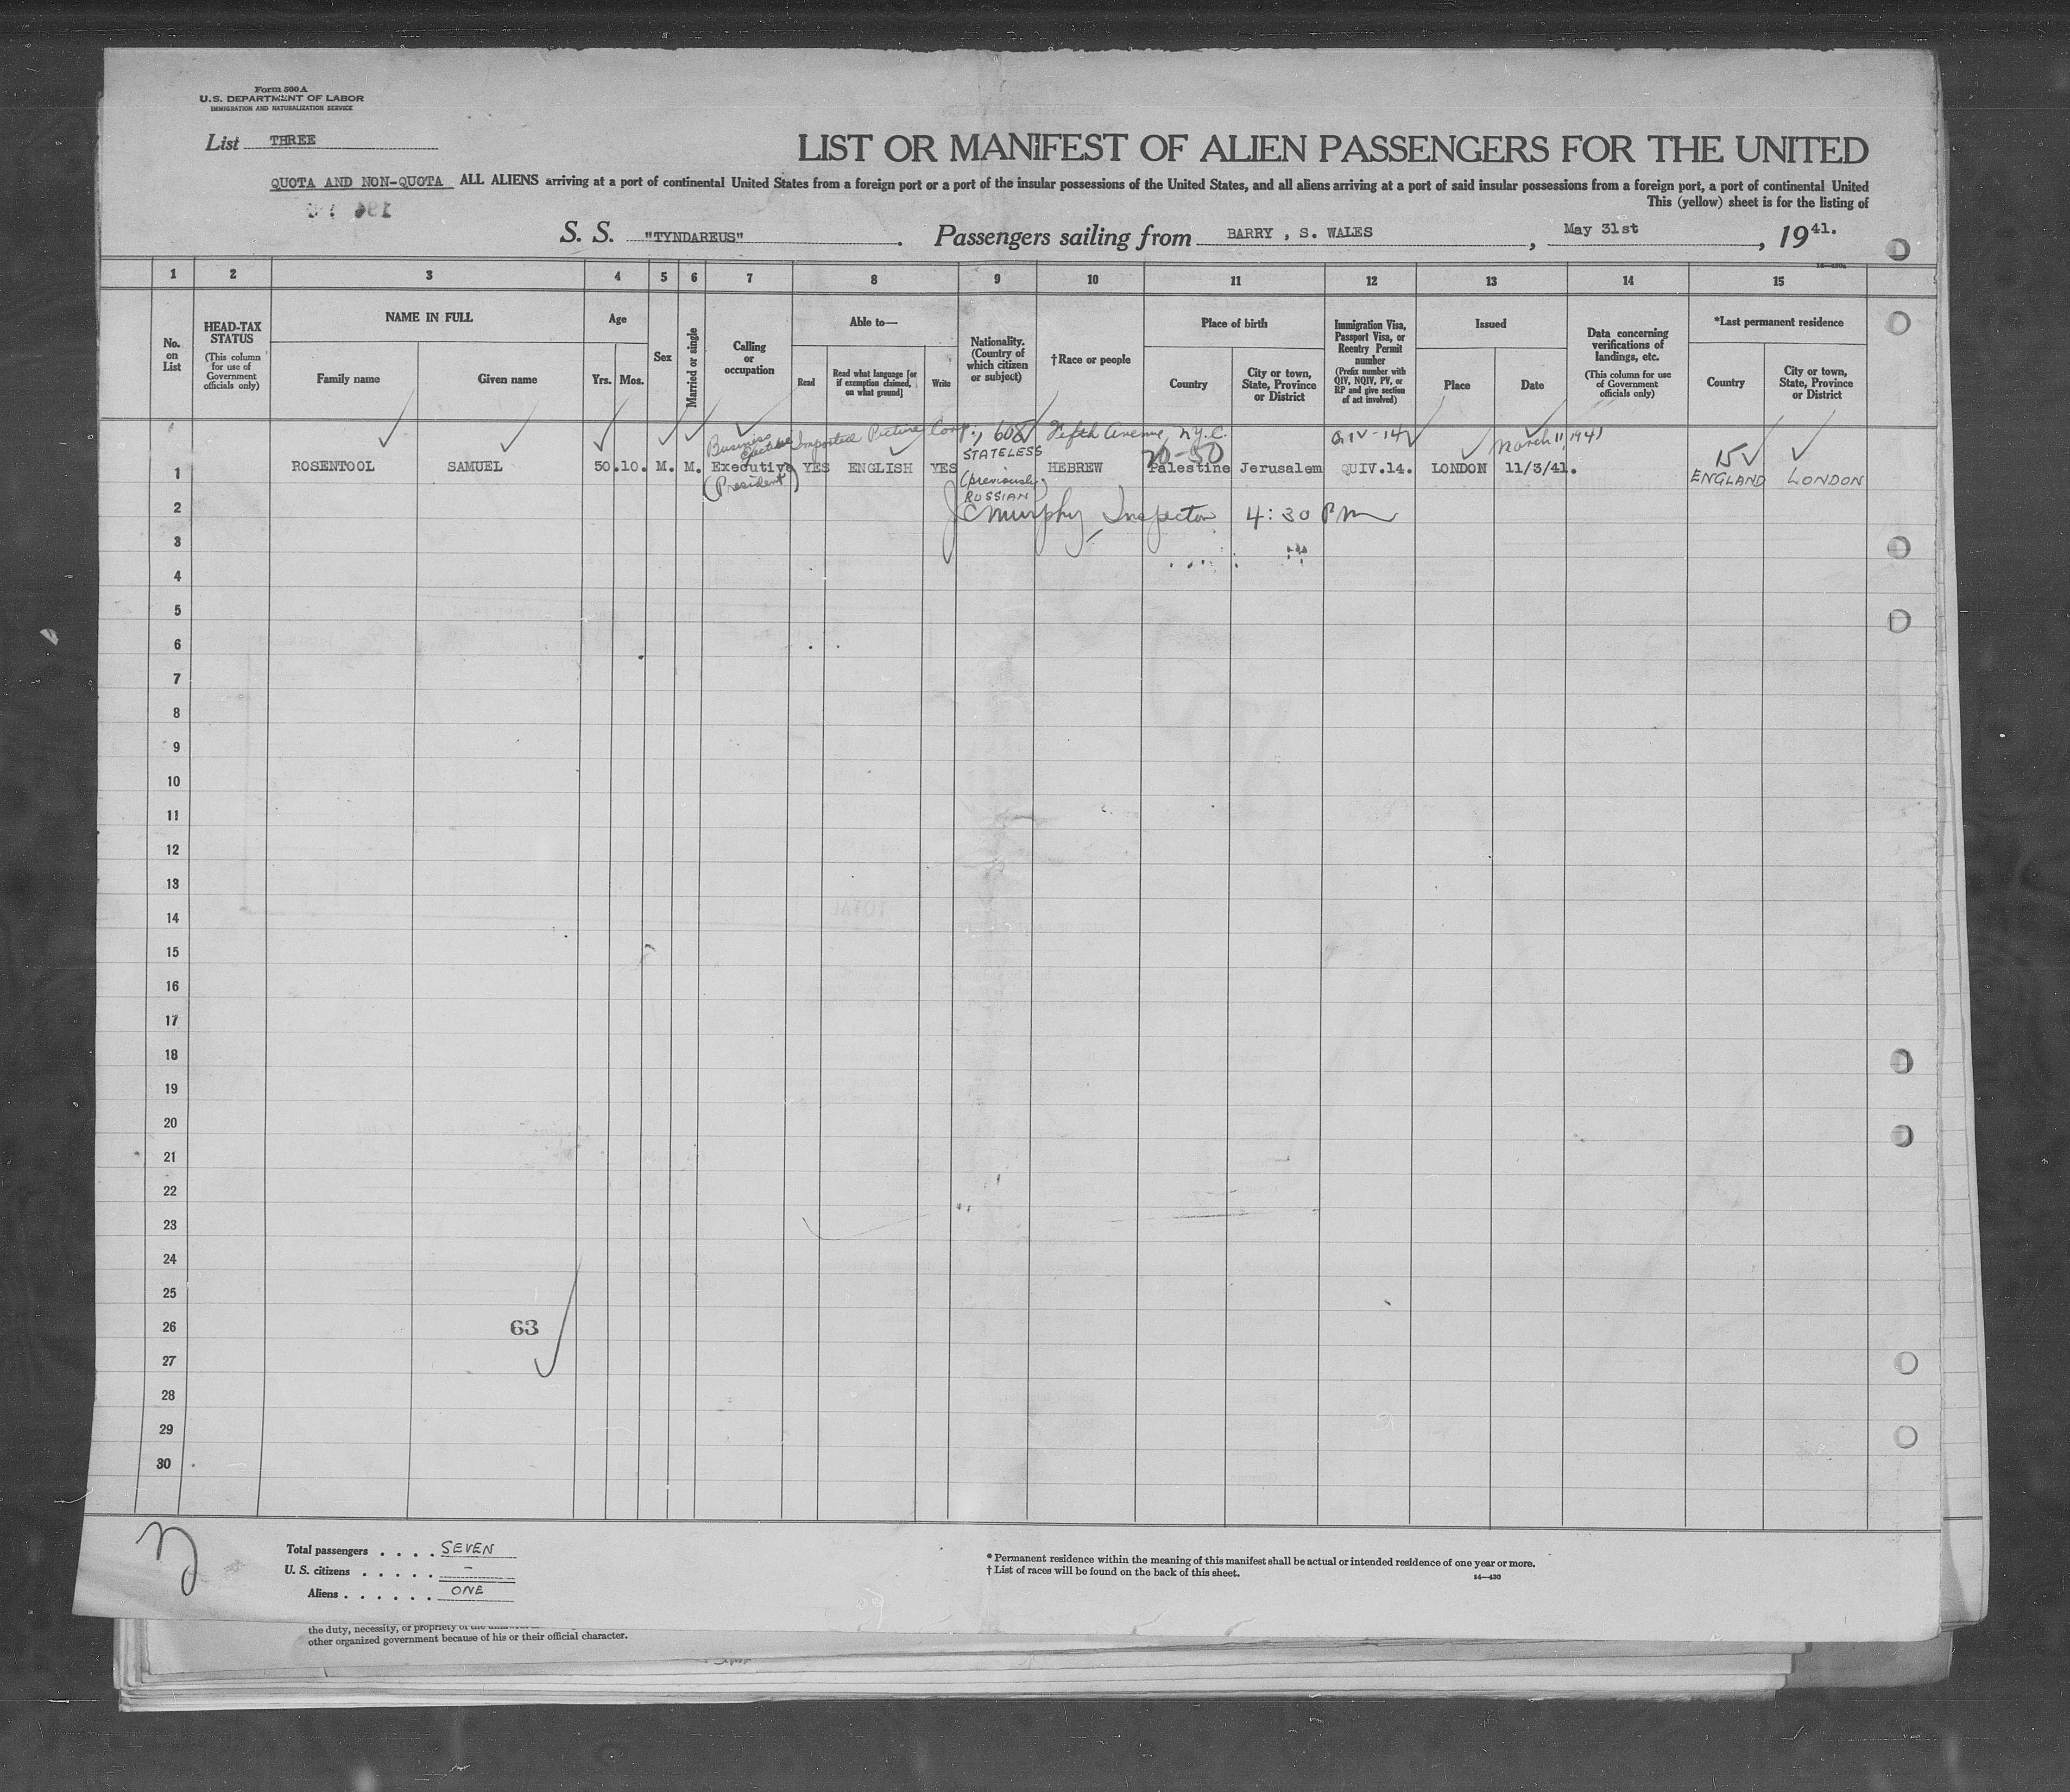 Form 500 A
U. S. DEPARTMENT OF LABOR
IMMIGRATION AND NATURALIZATION SERVICE
List THREE
LIST OR MANIFEST OF ALIEN PASSENGERS FOR THE UNITED
QUOTA AND NON-QUOTA ALL ALIENS arriving at a port of continental United States from a foreign port or a port of the insular possessions of the United States, and all aliens arriving at a port of said insular possessions from a foreign port, a port of continental United
This (yellow) sheet is for the listing of
S. S. "TYNDAREUS". Passengers sailing from BARRY , S. WALES, May 31st, 1941.
1 2 3 4 5 6 7 8 9 10 11 12 13 14 15
No. on List
HEAD-TAX STATUS
(This column for use of Government officials only)
NAME IN FULL
Family name
Given name
Age
Yrs. Mos.
Sex
Married or single
Calling or occupation
Able to—
Read
Read what language [or if exemption claimed, on what ground]
Write
Nationality. (Country of which citizen or subject)
†Race or people
Place of birth
Country
City or town, State, Province or District
Immigration Visa, Passport Visa, or Reentry Permit number
(Prefix number with QIV, NQIV, PV, or RP and give section of act involved)
Issued
Place
Date
Data concerning verifications of landings, etc.
(This column for use of Government officials only)
*Last permanent residence
Country
City or town, State, Province or District
Business Imported Picture Corp., 608 Fifth Avenue, N.Y.C. QIV-14 March 11, 1941
STATELESS 20-50 15
1 ROSENTOOL SAMUEL 50.10. M. M. Executive YES ENGLISH YES HEBREW Palestine Jerusalem QUIV.14. LONDON 11/3/41. ENGLAND LONDON
(President) (previously RUSSIAN)
2 JC Murphy Inspector 4:30 PM
3
4
5
6
7
8
9
10
11
12
13
14
15
16
17
18
19
20
21
22
23
24
25
26 63
27
28
29
30
Total passengers . . . . SEVEN
U. S. citizens . . . . . -
Aliens . . . . . . ONE
* Permanent residence within the meaning of this manifest shall be actual or intended residence of one year or more.
† List of races will be found on the back of this sheet.
14—430
the duty, necessity, or propriety of the
other organized government because of his or their official character.